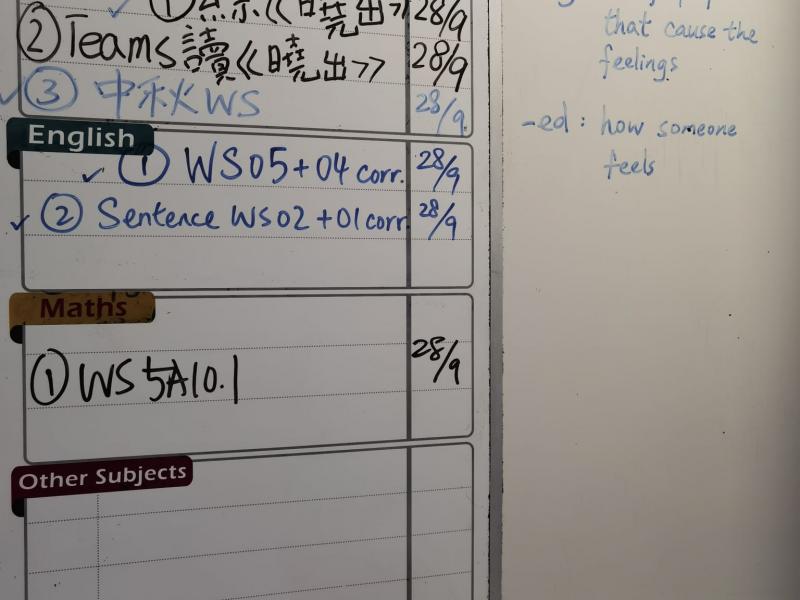 ①
《曉出》 28/9
② Teams 讀《曉出》 28/9
✓ ③ 中秋 WS 28/9
English
✓ ① WS05+04 corr. 28/9
✓ ② Sentence WS02+01 corr. 28/9
Maths
① WS 5A10.1 28/9
Other Subjects
that cause the
feelings
-ed: how someone
feels